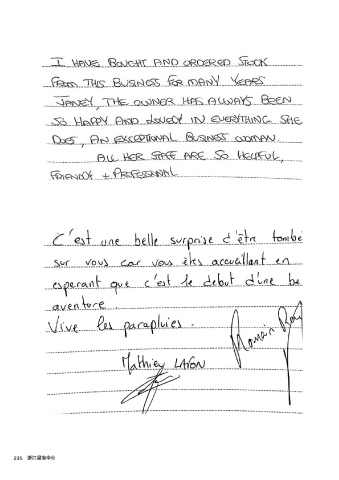 I HAVE BOUGHT AND ORDERED STOCK
FROM THIS BUSINESS FOR MANY YEARS
JANEY, THE OWNER HAS ALWAYS BEEN
SO HAPPY AND LOVELY IN EVERYTHING SHE
DOES, AN EXCEPTIONAL BUSINESS WOMAN.
ALL HER STAFF ARE SO HELPFUL,
FRIENDLY + PROFESSIONAL
C'est une belle surprise d'être tombé
sur vous car vous êtes accueillant en
esperant que c'est le debut d'une be
aventure.
Vive les parapluies.
Romain
Mathieu LAFON
235